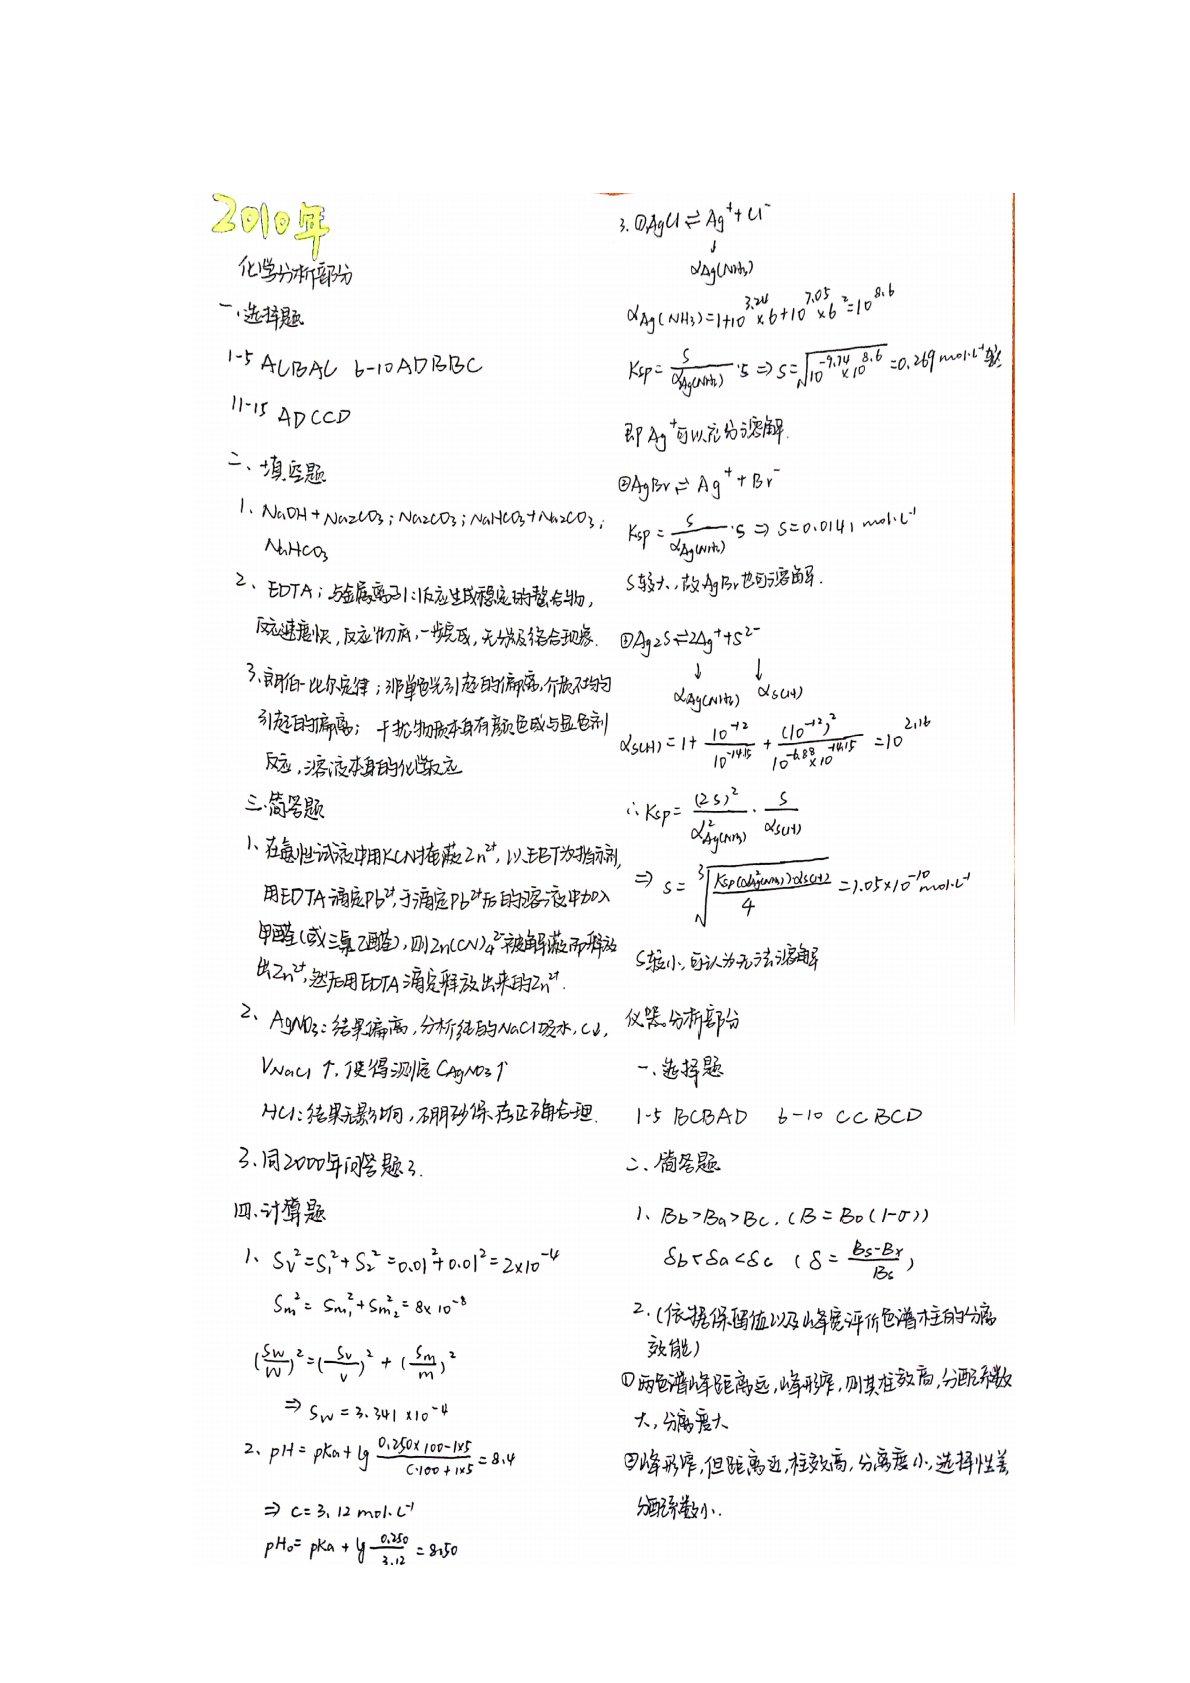 2010年
化学分析部分
一、选择题
1-5 ACBAC 6-10 ADBBC
11-15 ADCCD
二、填空题
1、NaOH+Na2CO3；Na2CO3；NaHCO3+Na2CO3；
NaHCO3
2、EDTA；与金属离子1:1反应生成稳定的螯合物，
反应速度快，反应彻底，一步完成，无分级络合现象．
3、朗伯-比尔定律；非单色光引起的偏离，介质不均匀
引起的偏离；干扰物质本身有颜色或与显色剂
反应，溶液本身的化学反应
三、简答题
1、在氨性试液中用KCN掩蔽Zn²⁺，以EBT为指示剂，
用EDTA滴定Pb²⁺，于滴定Pb²⁺后的溶液中加入
甲醛（或三氯乙醛），则Zn(CN)₄²⁻被解蔽而释放
出Zn²⁺，然后用EDTA滴定释放出来的Zn²⁺．
2、AgNO3：结果偏高，分析纯的NaCl吸水，C↓，
VNaCl↑，使得测定CAgNO3↑
HCl：结果无影响，硼砂保存正确合理．
3、同2000年问答题3．
四、计算题
1、Sv²=S₁²+S₂²=0.01²+0.01²=2×10⁻⁴
Sm²=Sm₁²+Sm₂²=8×10⁻⁸
(Sw/W)²=(Sv/V)²+(Sm/m)²
⇒ Sw=3.341×10⁻⁴
2、pH=pKa+lg (0.250×100-1×5)/(C·100+1×5)=8.4
⇒ C=3.12 mol·L⁻¹
pH₀=pKa+lg 0.250/3.12=8.50
3、①AgCl⇌Ag⁺+Cl⁻
↓
αAg(NH3)
αAg(NH3)=1+10^3.24×6+10^7.05×6²=10^8.6
Ksp=S/αAg(NH3)·S⇒S=√(10^-9.74×10^8.6)=0.269 mol·L⁻¹
即Ag⁺可以充分溶解．
②AgBr⇌Ag⁺+Br⁻
Ksp=S/αAg(NH3)·S⇒S=0.0141 mol·L⁻¹
S较大，故AgBr也可溶解．
①Ag2S⇌2Ag⁺+S²⁻
↓ ↓
αAg(NH3) αS(H)
αS(H)=1+10⁻¹²/10^-14.15+(10⁻¹²)²/(10^-6.88×10^-14.15)=10^2.16
∴Ksp=(2S)²/α²Ag(NH3)·S/αS(H)
⇒ S=³√(Ksp(α²Ag(NH3))αS(H)/4)=1.05×10⁻¹⁰ mol·L⁻¹
S较小，可认为无法溶解
仪器分析部分
一、选择题
1-5 BCBAD 6-10 CCBCD
二、简答题
1、Bb>Ba>Bc．（B=B0(1-σ)）
δb<δa<δc （δ=(Bs-Br)/Bs）
2．（依据保留值以及峰宽评价色谱柱的分离
效能）
①两色谱峰距离远，峰形窄，则其柱效高，分配系数
大，分离度大
②峰形窄，但距离近，柱效高，分离度小，选择性差
分配系数小．